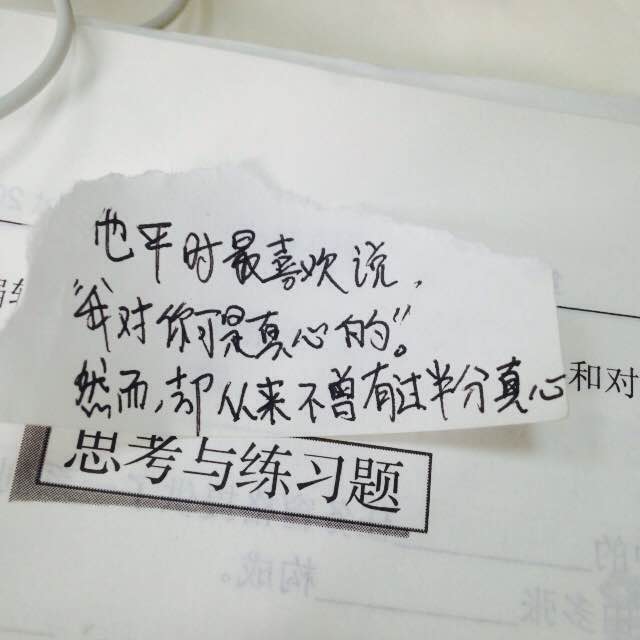 他平时最喜欢说，
“我对你可是真心的”。
然而，却从来不曾有过半分真心
和对
思考与练习题